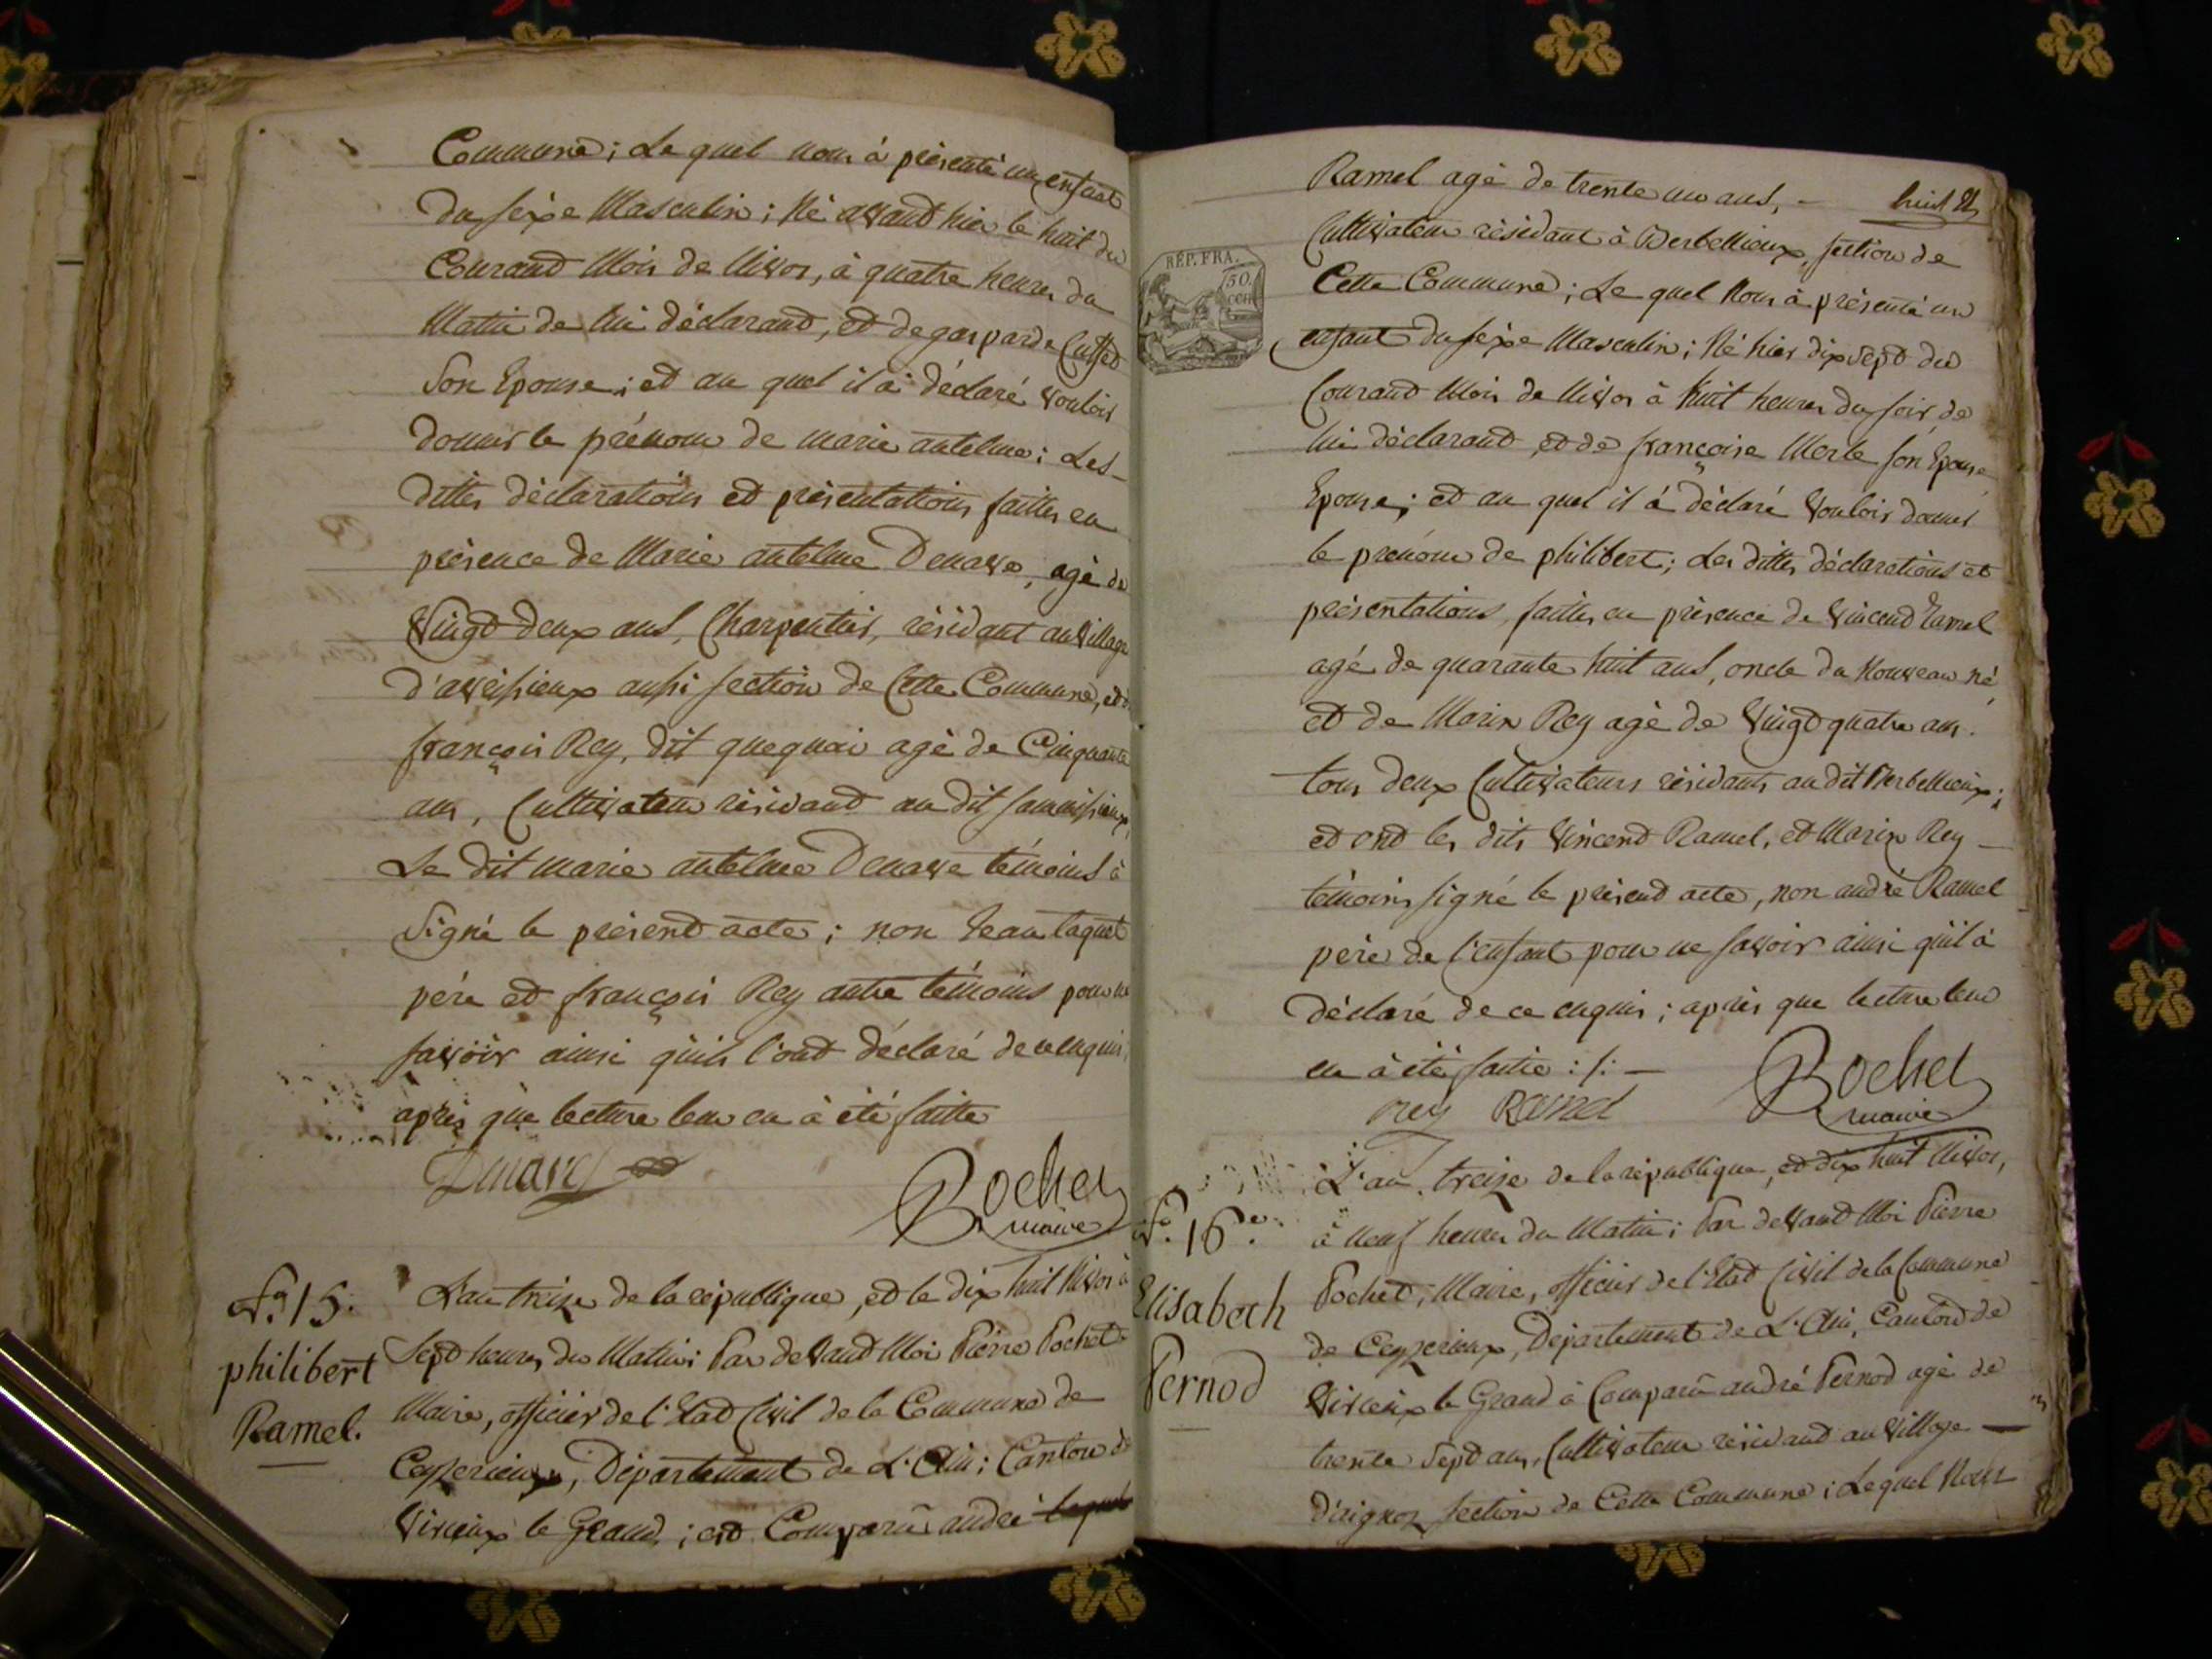 Commune; Le quel nous à présenté un enfant
du séxe Masculin; Né avand hier le huit du
Courand Mois de Nivos, à quatre heures du
Matin de lui déclarand, et de gasparde Cusset
Son Epouse; et au quel il à déclaré Vouloir
donner le prénom de marie antelme; Les
dittes déclarations et présentations faittes en
présence de Marie antelme Denave, agé de
Vingt deux ans, Charpentier, résidant au Village
d'aveissieux aussi section de Cette Commune, et de
françois Rey, dit quequai agé de Cinquante
ans, Cultivateur résidand au dit
Le dit marie antelme Denave témoins à
Signé le présend acte; non Jean taquet
pére et françois Rey autre témoins pour ne
savoir ainsi quils l'ont déclaré de ce enquis,
après que lecture leur en à été faitte
Denave
Pochet
maire
N.º 15.
philibert
Ramel.
L'an treize de la république, et le dix huit Nivos à
Sept heures du Matin; Par devand Moi Pierre Pochet
Maire, officier de l'Etat Civil de la Commune de
Ceyzerieux, Département de L'Ain; Canton de
Virieux le Grand; est Comparû andré
Ramel agé de trente un ans, —
huit
Cultivateur résidant à Verbellieux, section de
Cette Commune; Le quel Nous à présenté un
RÉP. FRA.
50.
CEN
enfant du séxe Masculin; Né hier dix Sept du
Courand Mois de Nivos à huit heures du soir de
lui déclarand, et de françoise Merle son Epouse
Epouse; et au quel il à déclaré Vouloir donner
le prénom de philibert; Les dittes déclarations et
présentations, faittes en présence de Vincend Ramel
agé de quarante huit ans, oncle du Nouveau né
et de Marin Rey agé de Vingt quatre ans.
tous deux Cultivateurs résidants au dit Verbellieux;
et ont les dits Vincend Ramel, et Marin Rey —
témoins signé le présend acte, non andré Ramel
pére de l'enfant pour ne savoir ainsi quil à
déclaré de ce enquis; après que lecture leur
en à été faitte :/: —
rey Ramel
Pochet
maire
N.º 16.e
Elisabeth
Pernod
L'an treize de la république, et dix huit Nivos,
à Neuf heures du Matin; Par devand Moi Pierre
Pochet, Maire, officier de l'Etat Civil de la Commune
de Ceyzerieux, Département de L'Ain, Canton de
Virieux le Grand à Comparû andré Pernod agé de
trente Sept ans, Cultivateur résidand au Village —
d'aignoz section de Cette Commune; Lequel Nous